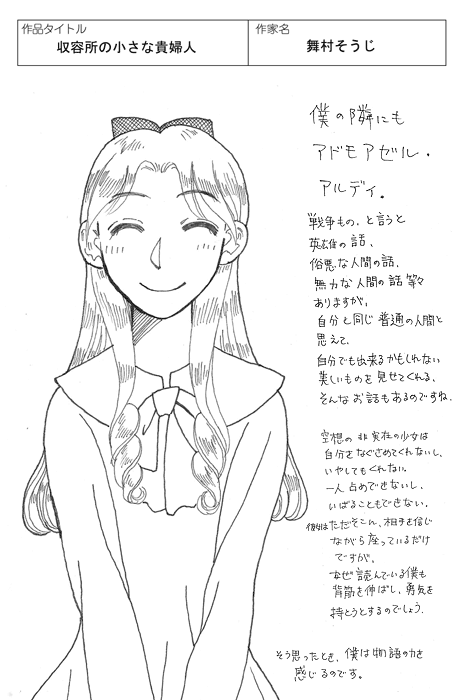 作品タイトル
収容所の小さな貴婦人
作家名
舞村そうじ
僕の隣にも
アドモアゼル・
アルディ。
戦争もの、と言うと
英雄の話、
俗悪な人間の話、
無力な人間の話 等々
ありますが、
自分と同じ普通の人間と
思えて、
自分でも出来るかもしれない
美しいものを見せてくれる、
そんなお話もあるのですね。
空想の非実在の少女は
自分をなぐさめてくれないし、
いやしてもくれない
一人占めできないし、
いばることもできない。
彼女はただそこに、相手を信じ
ながら座っているだけ
ですが、
なぜ読んでいる僕も
背筋を伸ばし、勇気を
持とうとするのでしょう。
そう思ったとき、僕は物語の力を
感じるのです。